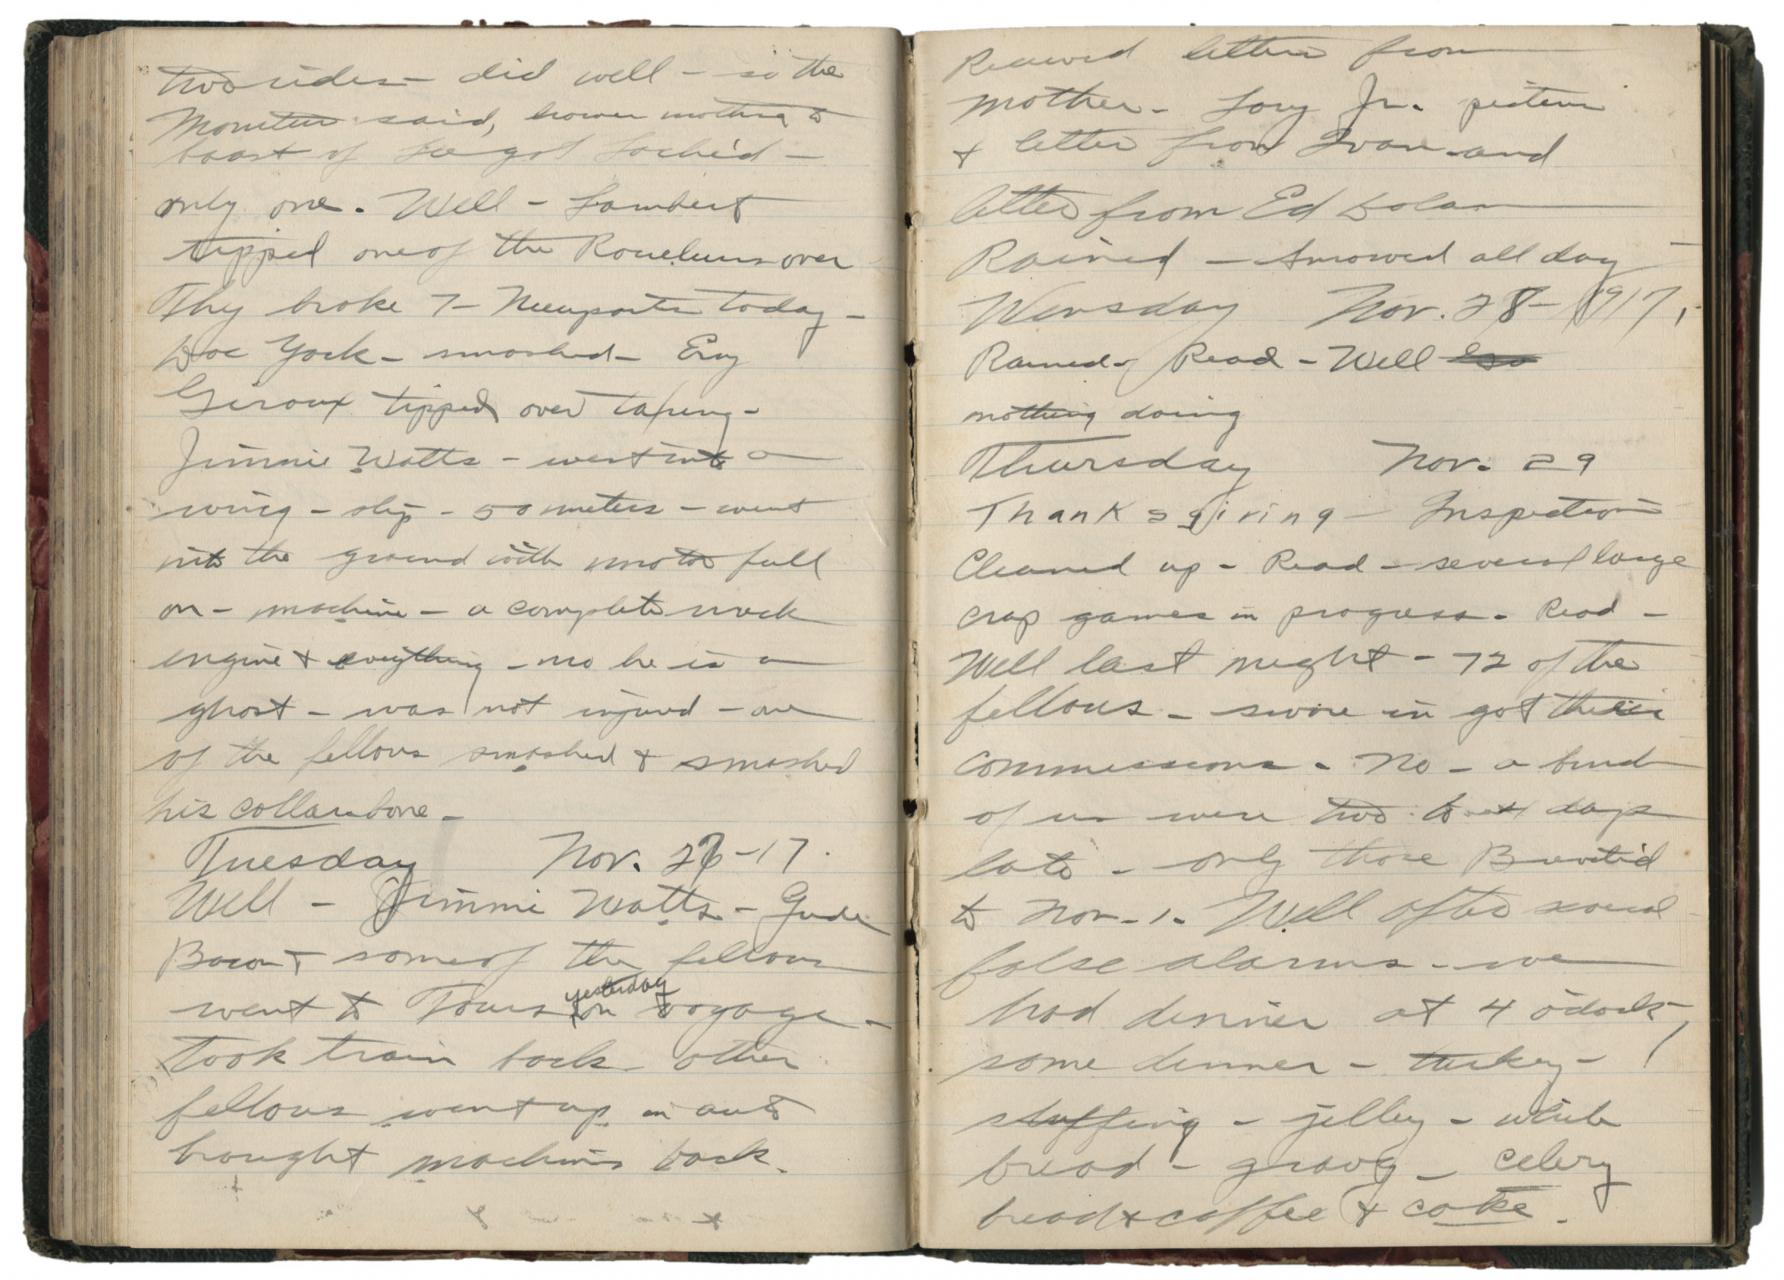 two rides - did well - so the
Moniteur said, however nothing to
boast of
only one. Well - Lambert
tipped one of the Rouleurs over
They broke 7 - Nieuports today -
Doc York - smashed - Eny
Giroux tipped over taxiing -
Jimmie Watts - went into a
wing - slip - 50 meters - went
into the ground with motor full
on - machine - a complete wreck
engine & everything - no he is a
ghost - was not injured - one
of the fellows smashed & smashed
his collarbone -
Tuesday Nov. 27-17.
Well - Jimmie Watts - Gude
Bacon & some of the fellows
went to Tours yesterday on voyage -
took train back - other
fellows went up in auto
brought machines back.
Received letter from
mother - Tony Jr. picture
& letter from Ivan and
letter from Ed Dolan
Rained - snowed all day
Wensday Nov. 28 - 1917.
Rained - Read - Well
nothing doing
Thursday Nov. 29
Thanksgiving - Inspection
Cleaned up - Read - several large
crap games in progress. Read -
Well last night - 72 of the
fellows - swore in got their
commissions. No - a bunch
of us were two days
late - only those Brevetted
to Nov. 1. Well after several
false alarms - we
had dinner at 4 o'clock
some dinner - turkey - !
stuffing - jelley - white
bread - gravy - celery
bread & coffee & cake.